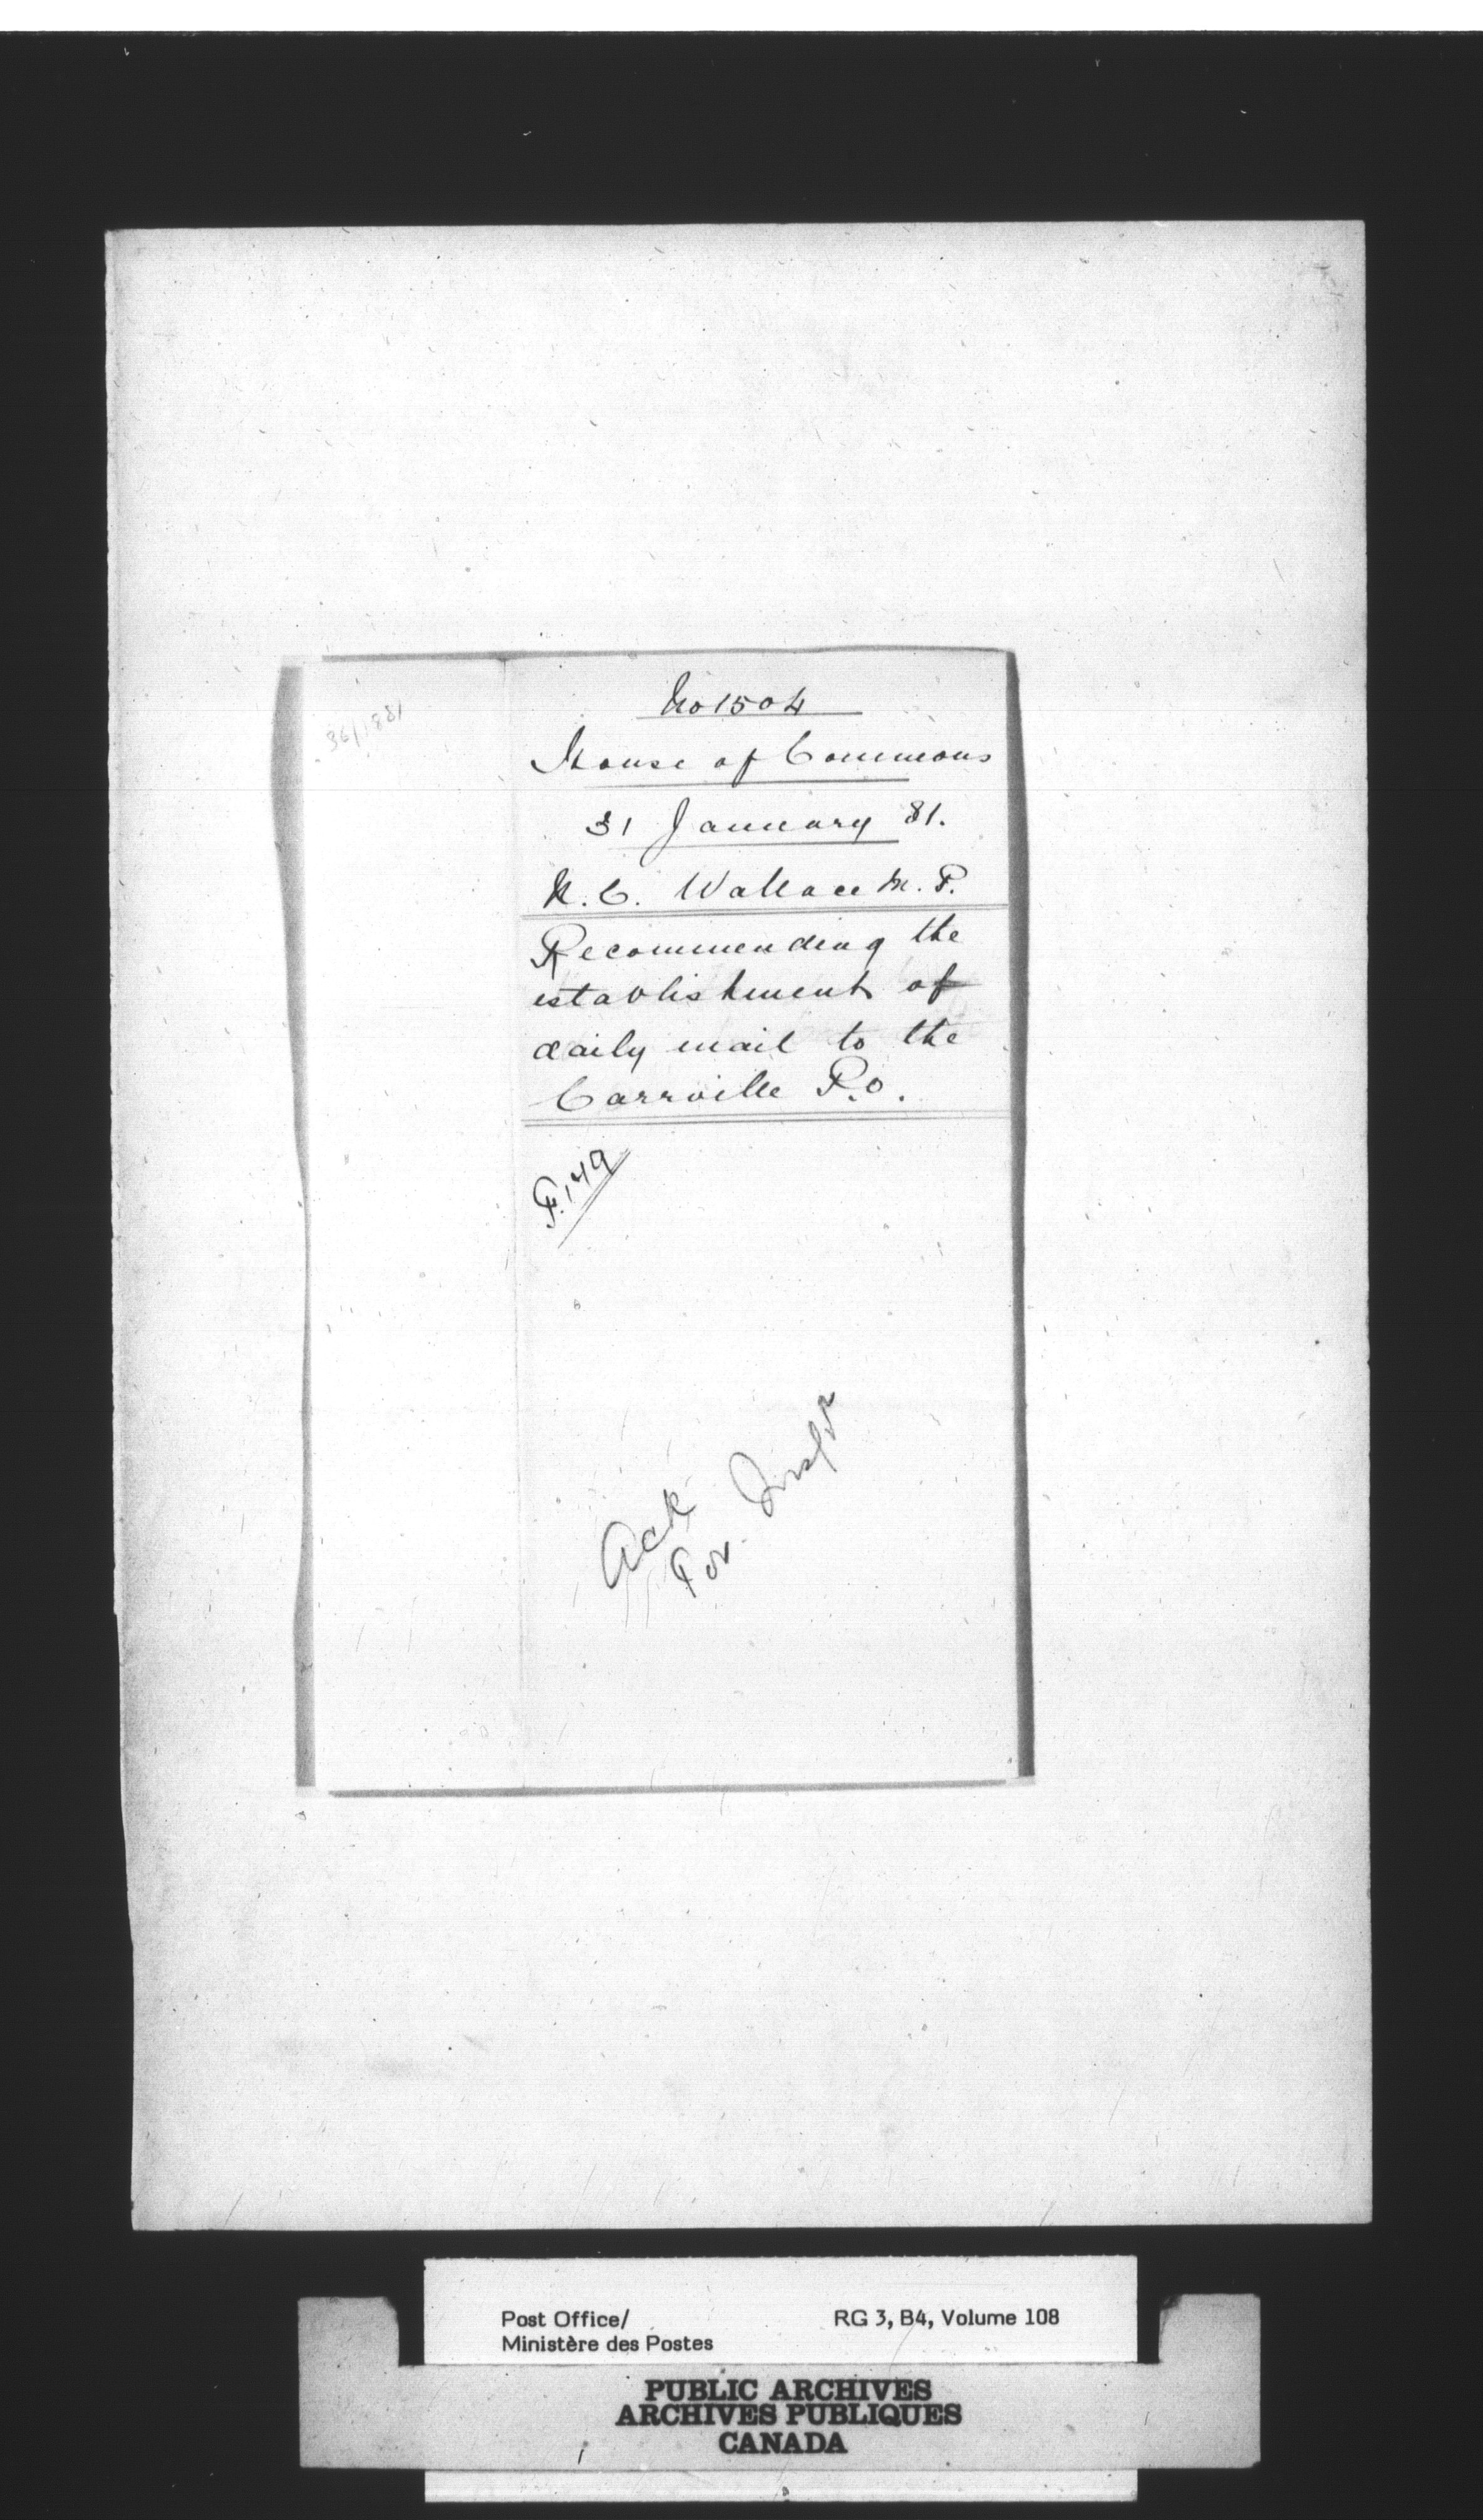 36/1881
No 1504
House of Commons
31 January 81.
N. C. Wallace M. P.
Recommending the
establishment of
daily mail to the
Carrville P.O.
F. 149
Ack
For. Inspr
Post Office/
Ministère des Postes
RG 3, B4, Volume 108
PUBLIC ARCHIVES
ARCHIVES PUBLIQUES
CANADA